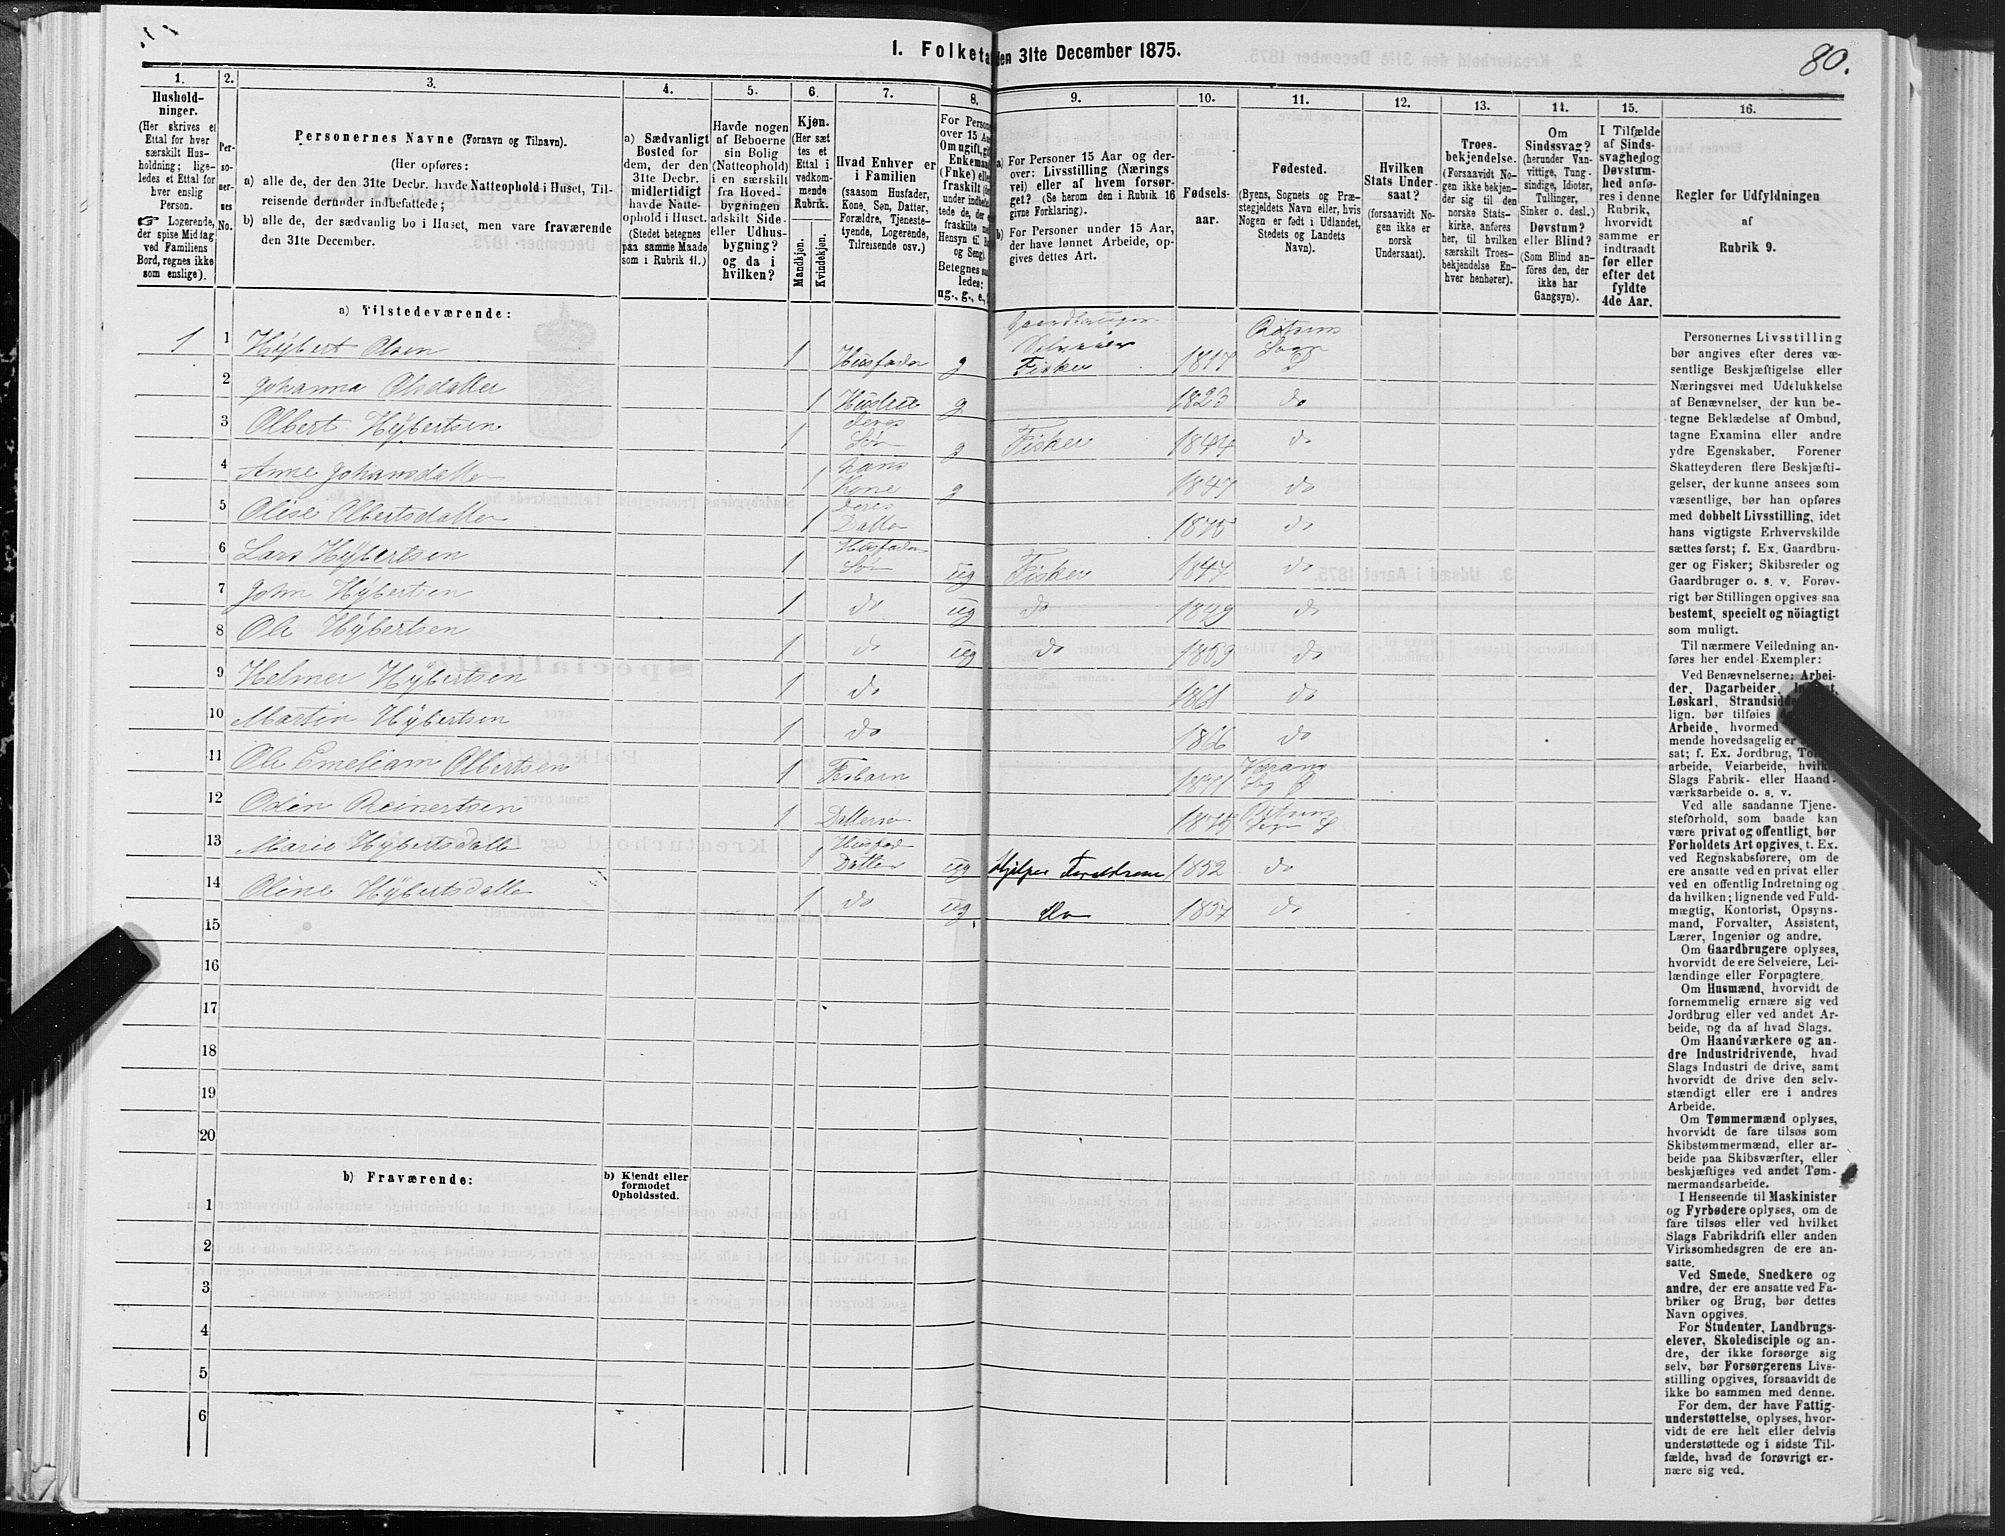 80.
I. Folketa
den 31te December 1875.
1. 2. 3. 4. 5. 6. 7. 8. 9. 10. 11. 12. 13. 14. 15. 16.
Hushold-
ninger.
(Her skrives et
Ettal for hver
særskilt Hus-
holdning; lige-
ledes et Ettal for
hver enslig
Person.
☞ Logerende,
der spise Middag
ved Familiens
Bord, regnes ikke
som enslige).
Per-
so-
ner-
nes
No.
Personernes Navne (Fornavn og Tilnavn).
(Her opføres:
a) alle de, der den 31te Decbr. havde Natteophold i Huset, Til-
reisende derunder indbefattede;
b) alle de, der sædvanlig bo i Huset, men vare fraværende
den 31te December.
a) Sædvanligt
Bosted for
dem, der den
31te Decbr.
midlertidigt
havde Natte-
ophold i Huset.
(Stedet betegnes
paa samme Maade
som i Rubrik 11.)
Havde nogen
af Beboerne
sin Bolig
(Natteophold)
i en særskilt
fra Hoved-
bygningen
adskilt Side-
eller Udhus-
bygning?
og da i
hvilken?
Kjøn.
(Her sæt-
tes et
Ettal i
vedkom-
mende
Rubrik.
Mandkjøn.
Kvindekjøn.
Hvad Enhver er
i Familien
(saasom Husfader,
Kone, Søn, Datter,
Forældre, Tjeneste-
tyende, Logerende,
Tilreisende osv.)
For Person
over 15 Aa
Om ugift, gif
Enkeman
(Enke) elle
fraskilt (de
under indbefa
tede de, der e
fraskilte me
Hensyn til Bo
og Seng).
Betegnes saa
ledes:
ug., g., e.,
a) For Personer 15 Aar og der-
over: Livsstilling (Nærings
vei) eller af hvem forsør-
get? (Se herom den i Rubrik 16
givne Forklaring).
b) For Personer under 15 Aar,
der have lønnet Arbeide, op-
gives dettes Art.
Fødsels-
aar.
Fødested.
(Byens, Sognets og Præ-
stegjeldets Navn eller, hvis
Nogen er født i Udlandet,
Stedets og Landets
Navn).
Hvilken
Stats Under-
saat?
(forsaavidt No-
gen ikke er
norsk
Undersaat).
Troes-
bekjendelse.
(Forsaavidt No-
gen ikke bekjen-
der sig til den
norske Stats-
kirke, anføres
her, til hvilken
særskilt Troes-
bekjendelse En-
hver henhører).
Om
Sindssvag?
(herunder Van-
vittige, Tung-
sindige, Idioter,
Tullinger,
Sinker o. desl.)
Døvstum?
eller Blind?
(Som Blind an-
føres den, der
ikke har
Gangsyn).
I Tilfælde
af Sinds-
svaghed og
Døvstum-
hed anfø-
res i denne
Rubrik,
hvorvidt
samme er
indtraadt
før eller
efter det
fyldte
4de Aar.
Regler for Udfyldningen
af
Rubrik 9.
a) Tilstedeværende:
1 1 Hÿbert Olsen 1 Husfader g Gaardbruger Selveier Fisker 1817 Sogn
2 Johanna Olsdatter 1 Hustru g 1823 do
3 Olbert Hÿbertsen 1 deres Søn g Fisker 1844 do
4 Anne Johansdatter 1 hans Kone g 1847 do
5 Olise Olbertsdatter 1 deres Datter 1875 do
6 Lars Hÿbertsen 1 Husfader Søn ug Fisker 1847 do
7 John Hÿbertsen 1 do ug do 1849 do
8 Ole Hÿbertsen 1 do ug do 1859 do
9 Helmer Hÿbertsen 1 do 1861 do
10 Martin Hÿbertsen 1 do 1866 do
11 Ole Emeliam Olbertsen 1 Fosbarn 1871
12 Odin Reinertsen 1 Dattersøn 1875
13 Marie Hÿbertsdatter 1 Husfad Datter ug Hjelper Forældrene 1852 do
14 Oline Hÿbertsdatter 1 do ug do 1857 do
15
16
17
18
19
20
b) Fraværende:
b) Kjendt eller
formodet
Opholdssted.
1
2
3
4
5
6
Personernes Livsstilling
bør angives efter deres væ-
sentlige Beskjæftigelse eller
Næringsvei med Udelukkelse
af Benævnelser, der kun be-
tegne Beklædelse af Ombud,
tagne Examina eller andre
ydre Egenskaber. Forener
Skatteyderen flere Beskjæfti-
gelser, der kunne ansees som
væsentlige, bør han opføres
med dobbelt Livsstilling, idet
hans vigtigste Erhvervskilde
sættes først; f. Ex. Gaardbru-
ger og Fisker; Skibsreder og
Gaardbruger o. s. v. Forøv-
rigt bør Stillingen opgives saa
bestemt, specielt og nöiagtigt
som muligt.
Til nærmere Veiledning an-
føres her endel Exempler:
Ved Benævnelserne: Arbei-
der, Dagarbeider,
Løskarl, Strandsidde
lign. bør tilføies
Arbeide, hvormed
mende hovedsagelig er
sat; f. Ex. Jordbrug,
arbeide, Veiarbeide, hvilke
Slags Fabrik- eller Haand-
værksarbeide o. s. v.
Ved alle saadanne Tjene-
steforhold, som baade kan
være privat og offentligt, bør
Forholdets Art opgives, t. Ex.
ved Regnskabsførere, om de
ere ansatte ved en privat eller
ved en offentlig Indretning og
da hvilken; lignende ved Fuld-
mægtig, Kontorist, Opsyns-
mand, Forvalter, Assistent,
Lærer, Ingeniør og andre.
Om Gaardbrugere oplyses,
hvorvidt de ere Selveiere, Lei-
lændinge eller Forpagtere.
Om Husmænd, hvorvidt de
fornemmelig ernære sig ved
Jordbrug eller ved andet Ar-
beide, og da af hvad Slags.
Om Haandværkere og an-
dre Industridrivende, hvad
Slags Industri de drive, samt
hvorvidt de drive den selv-
stændigt eller ere i andres
Arbeide.
Om Tømmermænd oplyses,
hvorvidt de fare tilsøs som
Skibstømmermænd, eller ar-
beide paa Skibsværfter, eller
beskjæftiges ved andet Tøm-
mermandsarbeide.
I Henseende til Maskinister
og Fyrbødere oplyses, om de
fare tilsøs eller ved hvilket
Slags Fabrikdrift eller anden
Virksomhedsgren de ere an-
satte.
Ved Smede, Snedkere og
andre, der ere ansatte ved Fa-
briker og Brug, bør dettes
Navn opgives.
For Studenter, Landbrugs-
elever, Skoledisciple og an-
dre, der ikke forsørge sig
selv, bør Forsørgerens Livs-
stilling opgives, forsaavidt de
ikke bo sammen med denne.
For dem, der have Fattig-
understøttelse, oplyses, hvor-
vidt de ere helt eller delvis
understøttede og i sidste Til-
fælde, hvad de forøvrigt er-
nære sig ved.